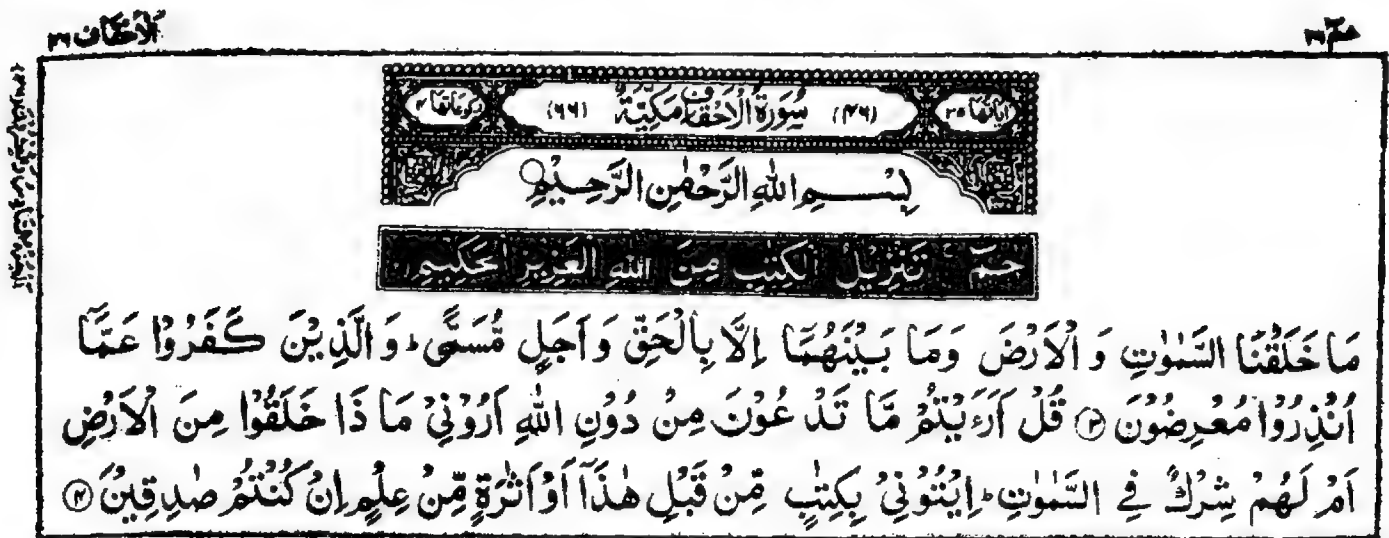 حٰمٓ ۲۶
الاحقاف ۴۶
اٰیاتھا ۳۵
(۴۶) سُوْرَةُ الْاَحْقَافِ مَكِّيَّةٌ (۶۶)
رکوعاتھا ۴
بِسْــــمِ اللّٰهِ الرَّحْمٰنِ الرَّحِـيْمِ
حٰمٓ تَنْزِيْلُ الْكِتٰبِ مِنَ اللّٰهِ الْعَزِيْزِ الْحَكِيْمِ
مَا خَلَقْنَا السَّمٰوٰتِ وَ الْاَرْضَ وَمَا بَيْنَهُمَا اِلَّا بِالْحَقِّ وَ اَجَلٍ مُّسَمًّى ؕ وَ الَّذِيْنَ كَفَرُوْا عَمَّاۤ
اُنْذِرُوْا مُعْرِضُوْنَ ۝۳ قُلْ اَرَءَيْتُمْ مَّا تَدْعُوْنَ مِنْ دُوْنِ اللّٰهِ اَرُوْنِيْ مَا ذَا خَلَقُوْا مِنَ الْاَرْضِ
اَمْ لَهُمْ شِرْكٌ فِي السَّمٰوٰتِ ؕ اِيْتُوْنِيْ بِكِتٰبٍ مِّنْ قَبْلِ هٰذَاۤ اَوْ اَثٰرَةٍ مِّنْ عِلْمٍ اِنْ كُنْتُمْ صٰدِقِيْنَ ۝۴